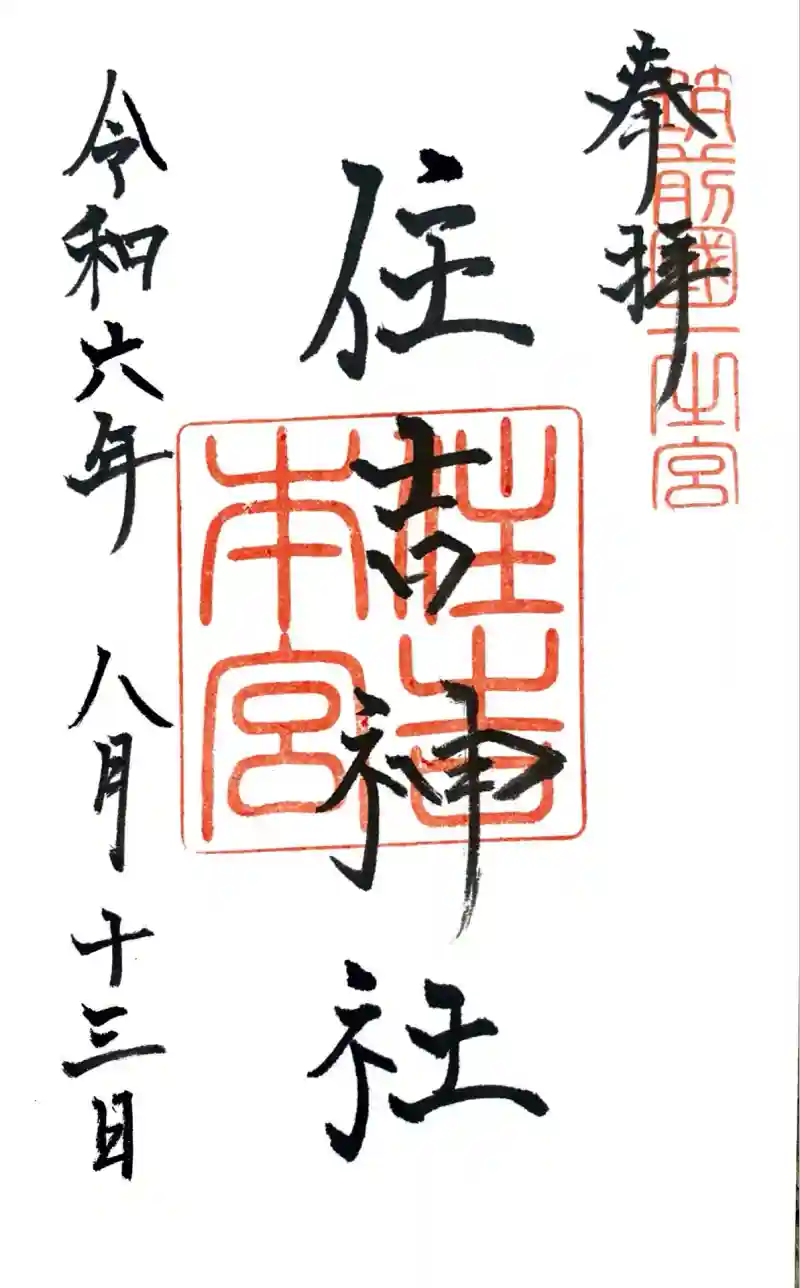 筑前國一之宮
奉拝
住吉神社
住吉本宮
令和六年 八月十三日